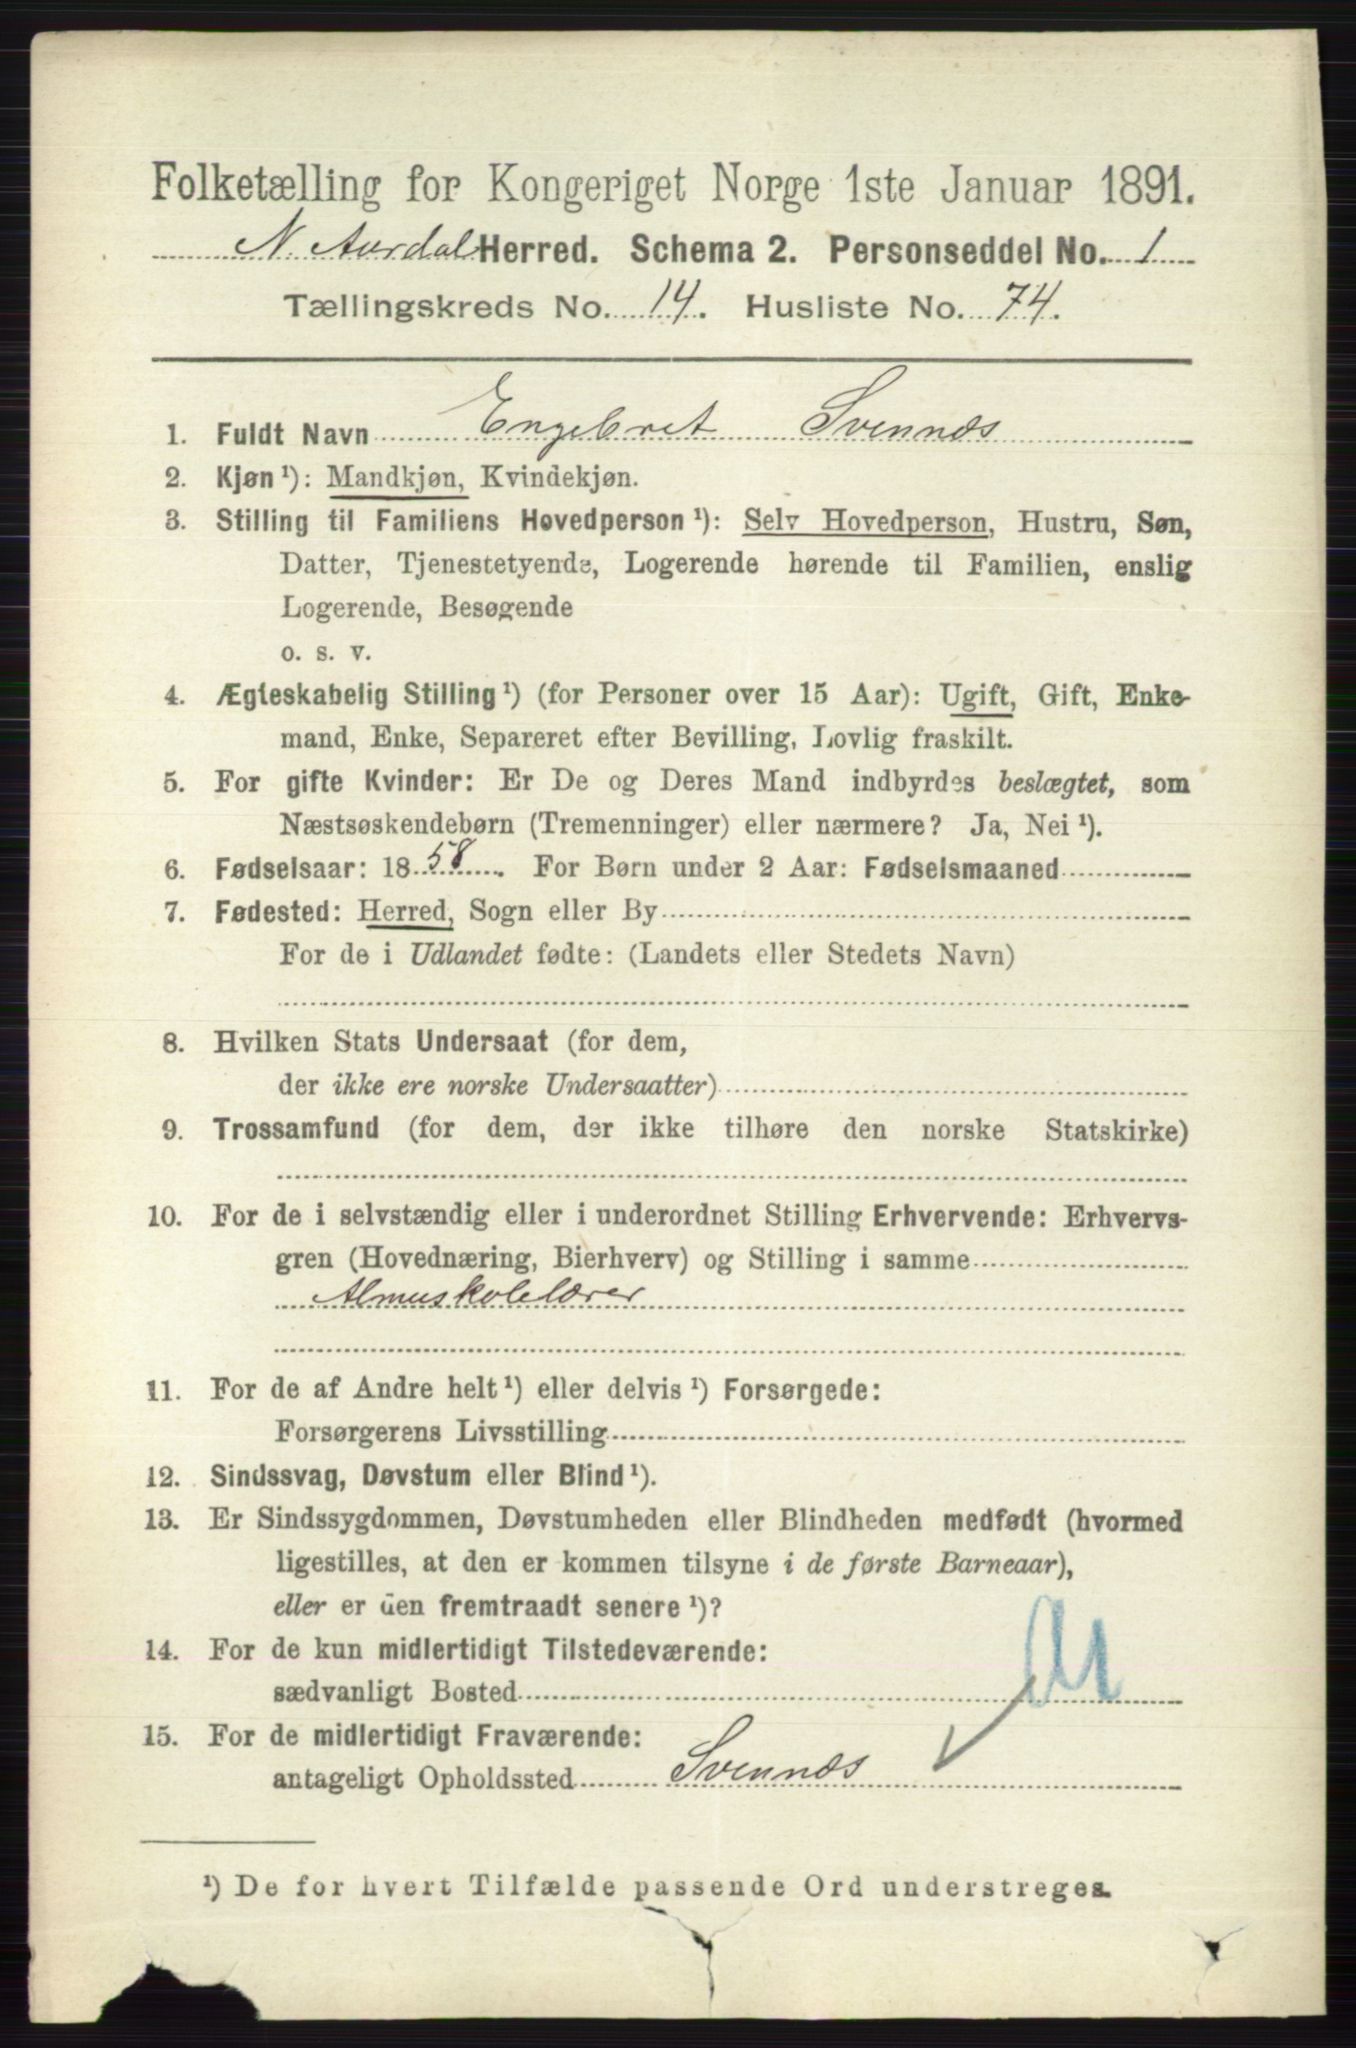 Folketælling for Kongeriget Norge 1ste Januar 1891.
N. Aurdal Herred. Schema 2. Personseddel No. 1
Tællingskreds No. 14. Husliste No. 74.
1. Fuldt Navn Engebret Svennæs
2. Kjøn¹): Mandkjøn, Kvindekjøn.
3. Stilling til Familiens Hovedperson¹): Selv Hovedperson, Hustru, Søn,
Datter, Tjenestetyende, Logerende hørende til Familien, enslig
Logerende, Besøgende
o. s. v.
4. Ægteskabelig Stilling¹) (for Personer over 15 Aar): Ugift, Gift, Enke-
mand, Enke, Separeret efter Bevilling, Lovlig fraskilt.
5. For gifte Kvinder: Er De og Deres Mand indbyrdes beslægtet, som
Næstsøskendebørn (Tremenninger) eller nærmere? Ja, Nei¹).
6. Fødselsaar: 1858. For Børn under 2 Aar: Fødselsmaaned
7. Fødested: Herred, Sogn eller By
For de i Udlandet fødte: (Landets eller Stedets Navn)
8. Hvilken Stats Undersaat (for dem,
der ikke ere norske Undersaatter)
9. Trossamfund (for dem, der ikke tilhøre den norske Statskirke)
10. For de i selvstændig eller i underordnet Stilling Erhvervende: Erhvervs-
gren (Hovednæring, Bierhverv) og Stilling i samme
Almuskolelærer
11. For de af Andre helt¹) eller delvis¹) Forsørgede:
Forsørgerens Livsstilling
12. Sindssvag, Døvstum eller Blind¹).
13. Er Sindssygdommen, Døvstumheden eller Blindheden medfødt (hvormed
ligestilles, at den er kommen tilsyne i de første Barneaar),
eller er den fremtraadt senere¹)?
14. For de kun midlertidigt Tilstedeværende:
sædvanligt Bosted
15. For de midlertidigt Fraværende:
antageligt Opholdssted Svennæs
¹) De for hvert Tilfælde passende Ord understreges.